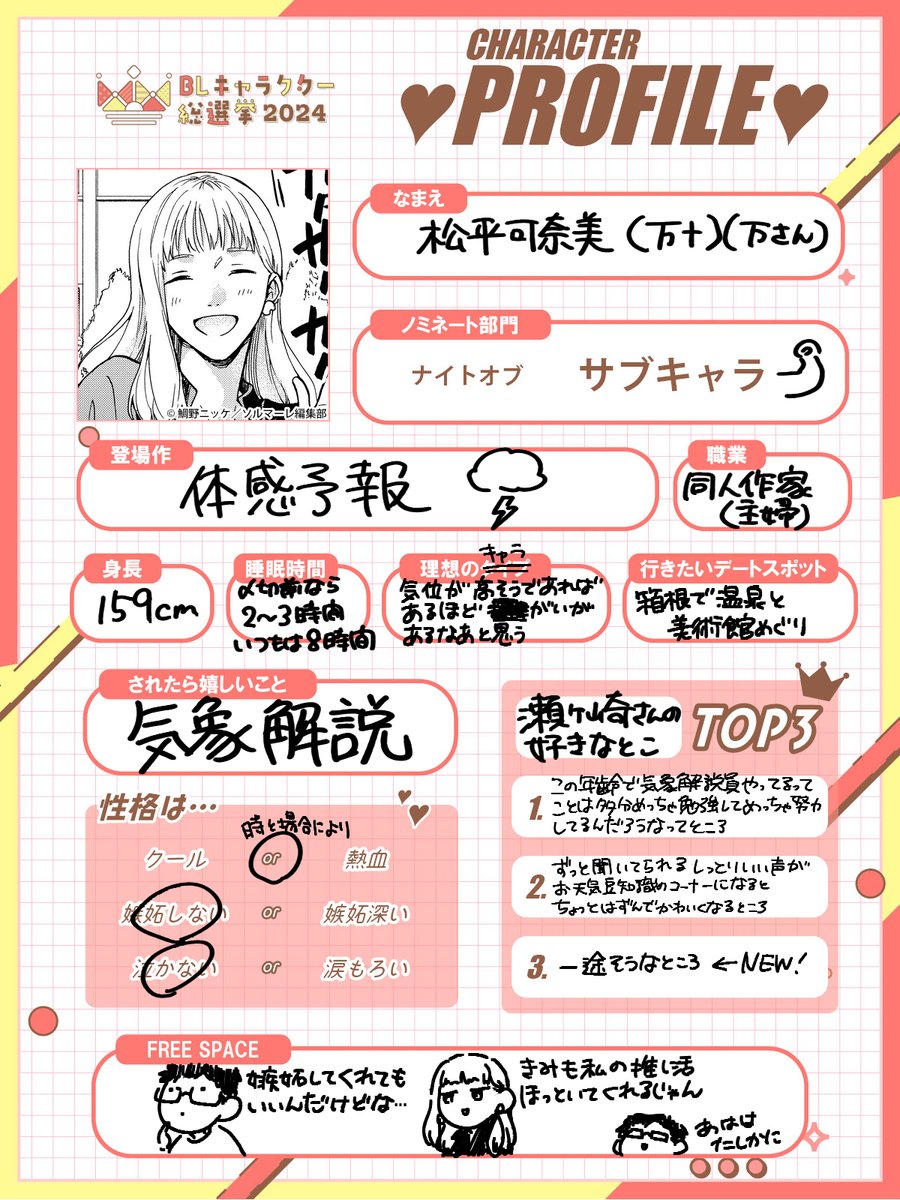 BLキャラクター
総選挙2024
CHARACTER
PROFILE
©鯛野ニッケ/ソルマーレ編集部
なまえ
松平可奈美(万十)(万さん)
ノミネート部門
ナイトオブ サブキャラ
登場作
体感予報
職業
同人作家
(主婦)
身長
159cm
睡眠時間
〆切前なら
2〜3時間
いつもは8時間
理想の
キャラ
気位が高そうであれば
あるほど がいが
あるなあと思う
行きたいデートスポット
箱根で温泉と
美術館めぐり
されたら嬉しいこと
気象解説
性格は…
時と場合により
クール or 熱血
嫉妬しない or 嫉妬深い
泣かない or 涙もろい
瀬ヶ崎さんの
好きなとこ
TOP3
1. この年齢で気象解説員やってるって
ことは多分めっちゃ勉強してめっちゃ努力
してるんだろうなってところ
2. ずっと聞いてられるしっとりいい声が
お天気豆知識のコーナーになると
ちょっとはずんでかわいくなるところ
3. 一途そうなところ ←NEW!
FREE SPACE
嫉妬してくれても
いいんだけどな…
きみも私の推し活
ほっといてくれるじゃん
あはは
たしかに